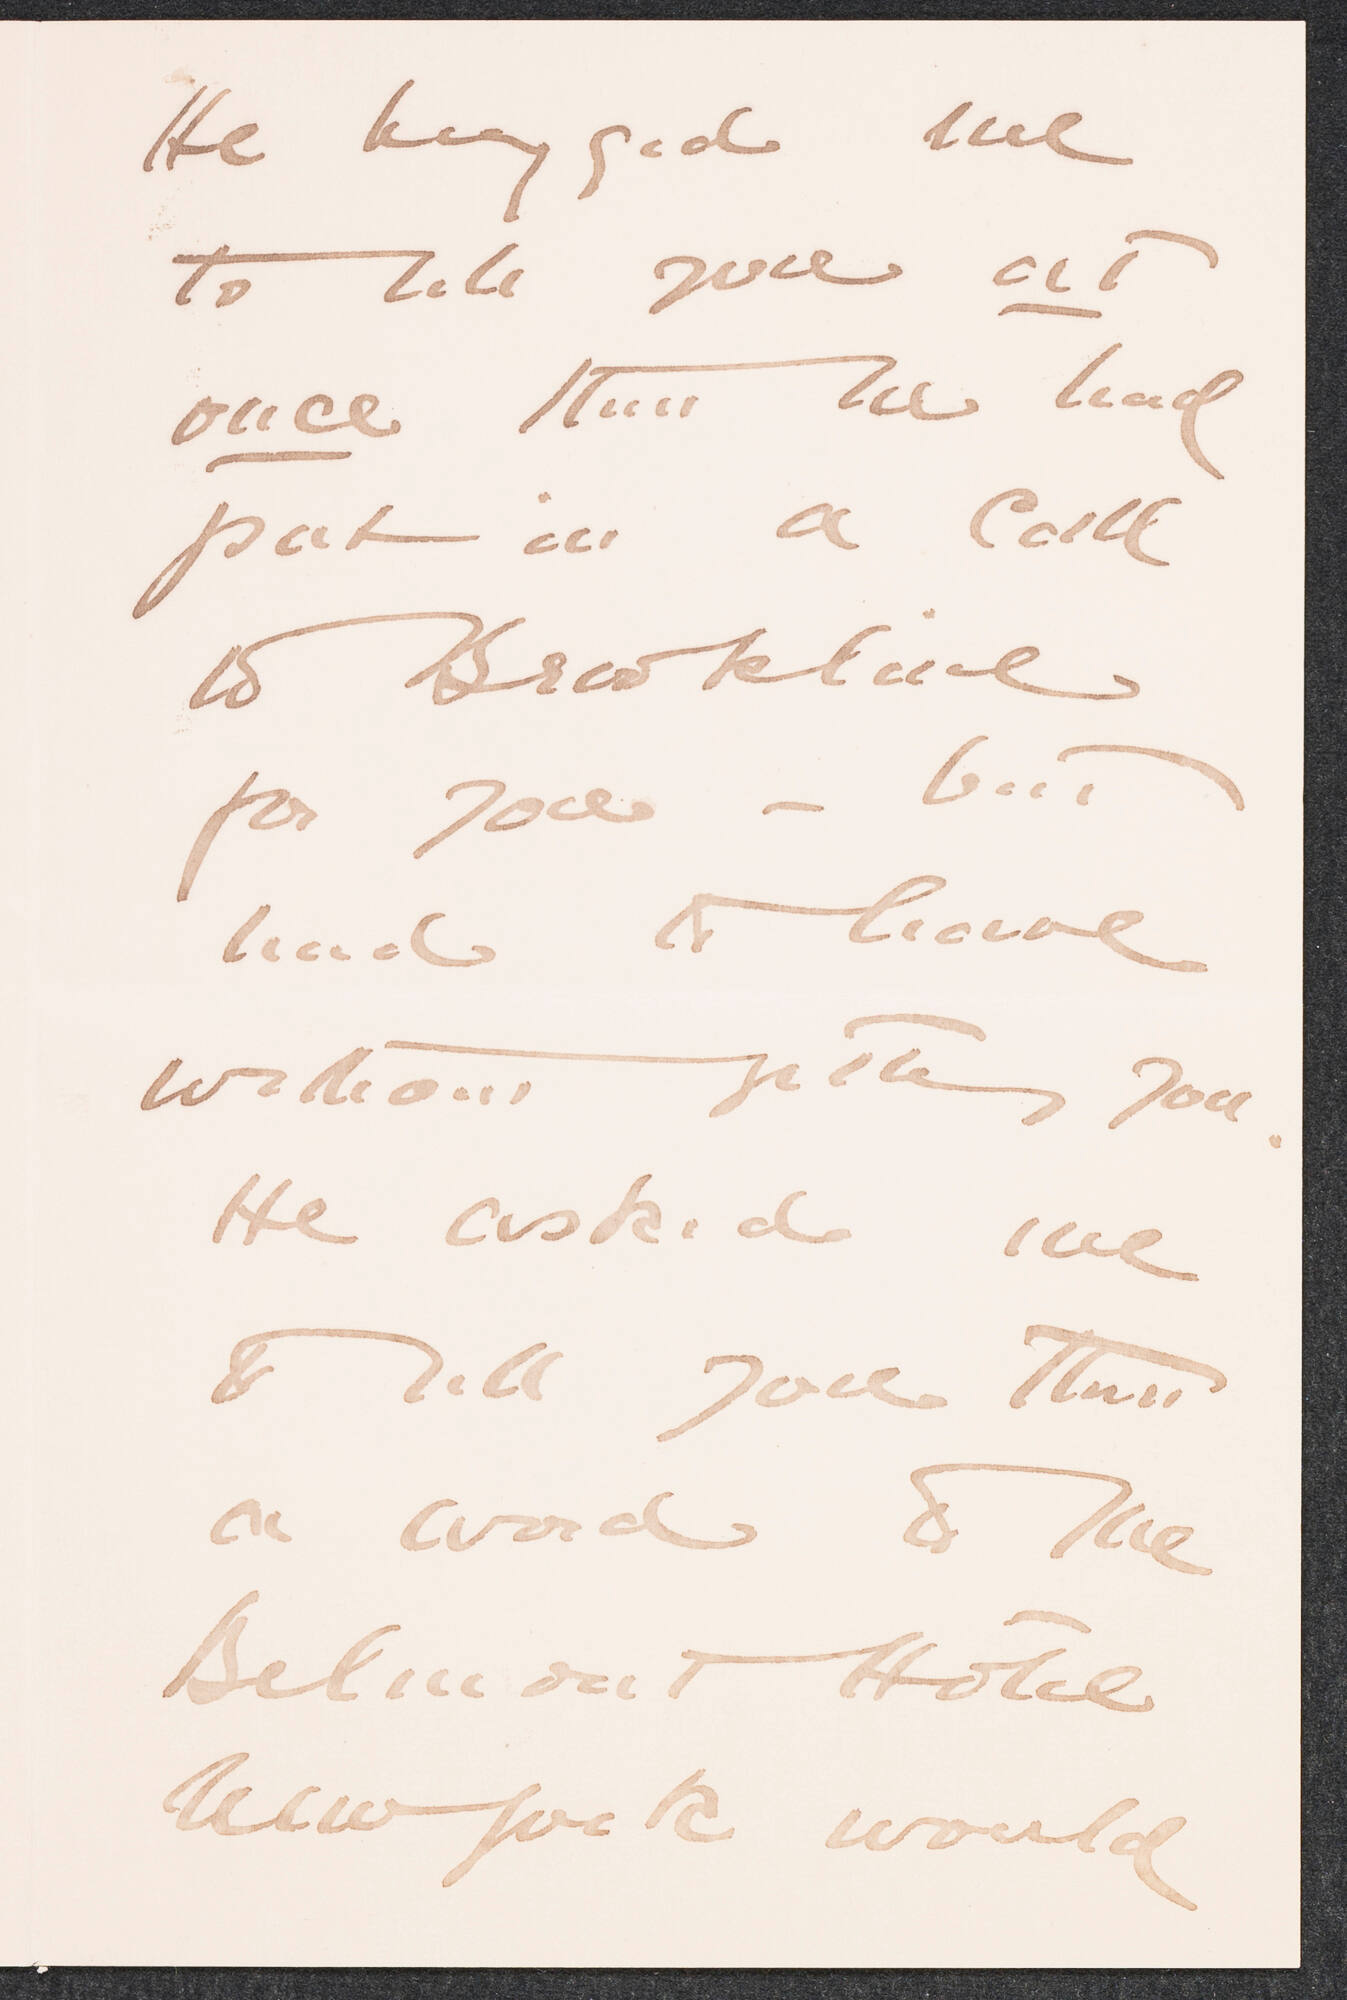 He begged me
to tell you at
once that he had
put in a call
to Brookline
for you – but
had to leave
without getting you.
He asked me
to tell you that
a word to the
Belmont Hotel
New York would